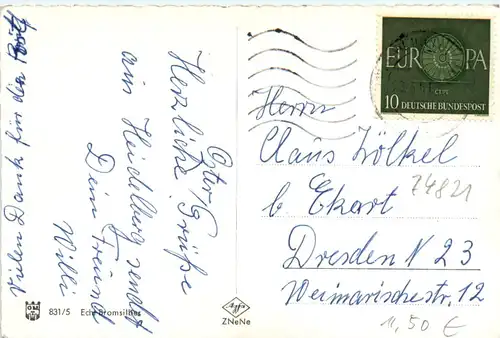 Oster/
Herzliche Grüße
aus Heidelberg sendet
Dein Freund
Willi
vielen Dank für die
831/5 Echt Bromsilber
Agfa
ZNeNe
EUROPA
CEPT
10 DEUTSCHE BUNDESPOST
Herrn
Claus Zölkel
b. Ekart
74821
Dresden N 23
Weimarischestr. 12
11,50 €